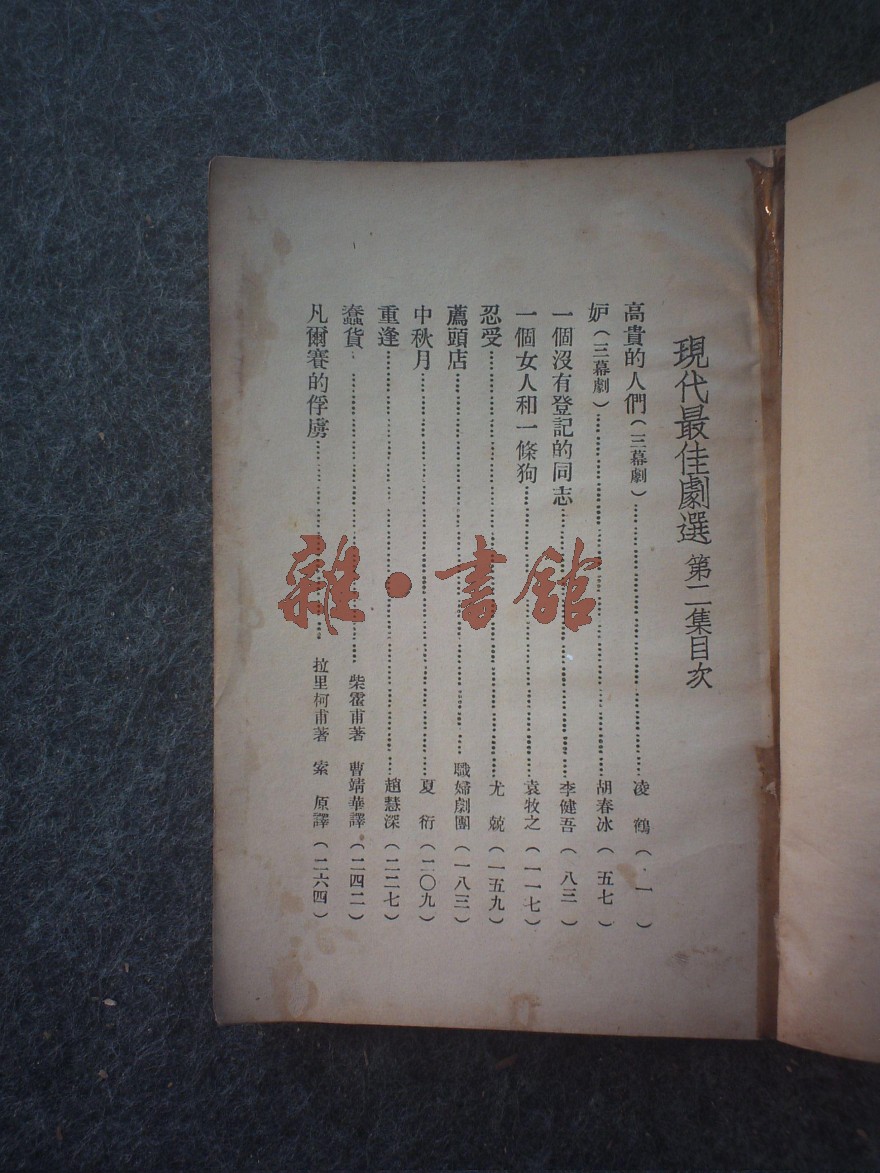 現代最佳劇選 第二集目次
高貴的人們(三幕劇)……凌鶴(一)
妒(三幕劇)……胡春冰(五七)
一個沒有登記的同志……李健吾(八三)
一個女人和一條狗……袁牧之(一一七)
忍受……尤兢(一五九)
薦頭店……職婦劇團(一八三)
中秋月……夏衍(二〇九)
重逢……趙慧深(二二七)
蠢貨……柴霍甫著 曹靖華譯(二四二)
凡爾賽的俘虜……拉里柯甫著 索原譯(二六四)
雜·書館